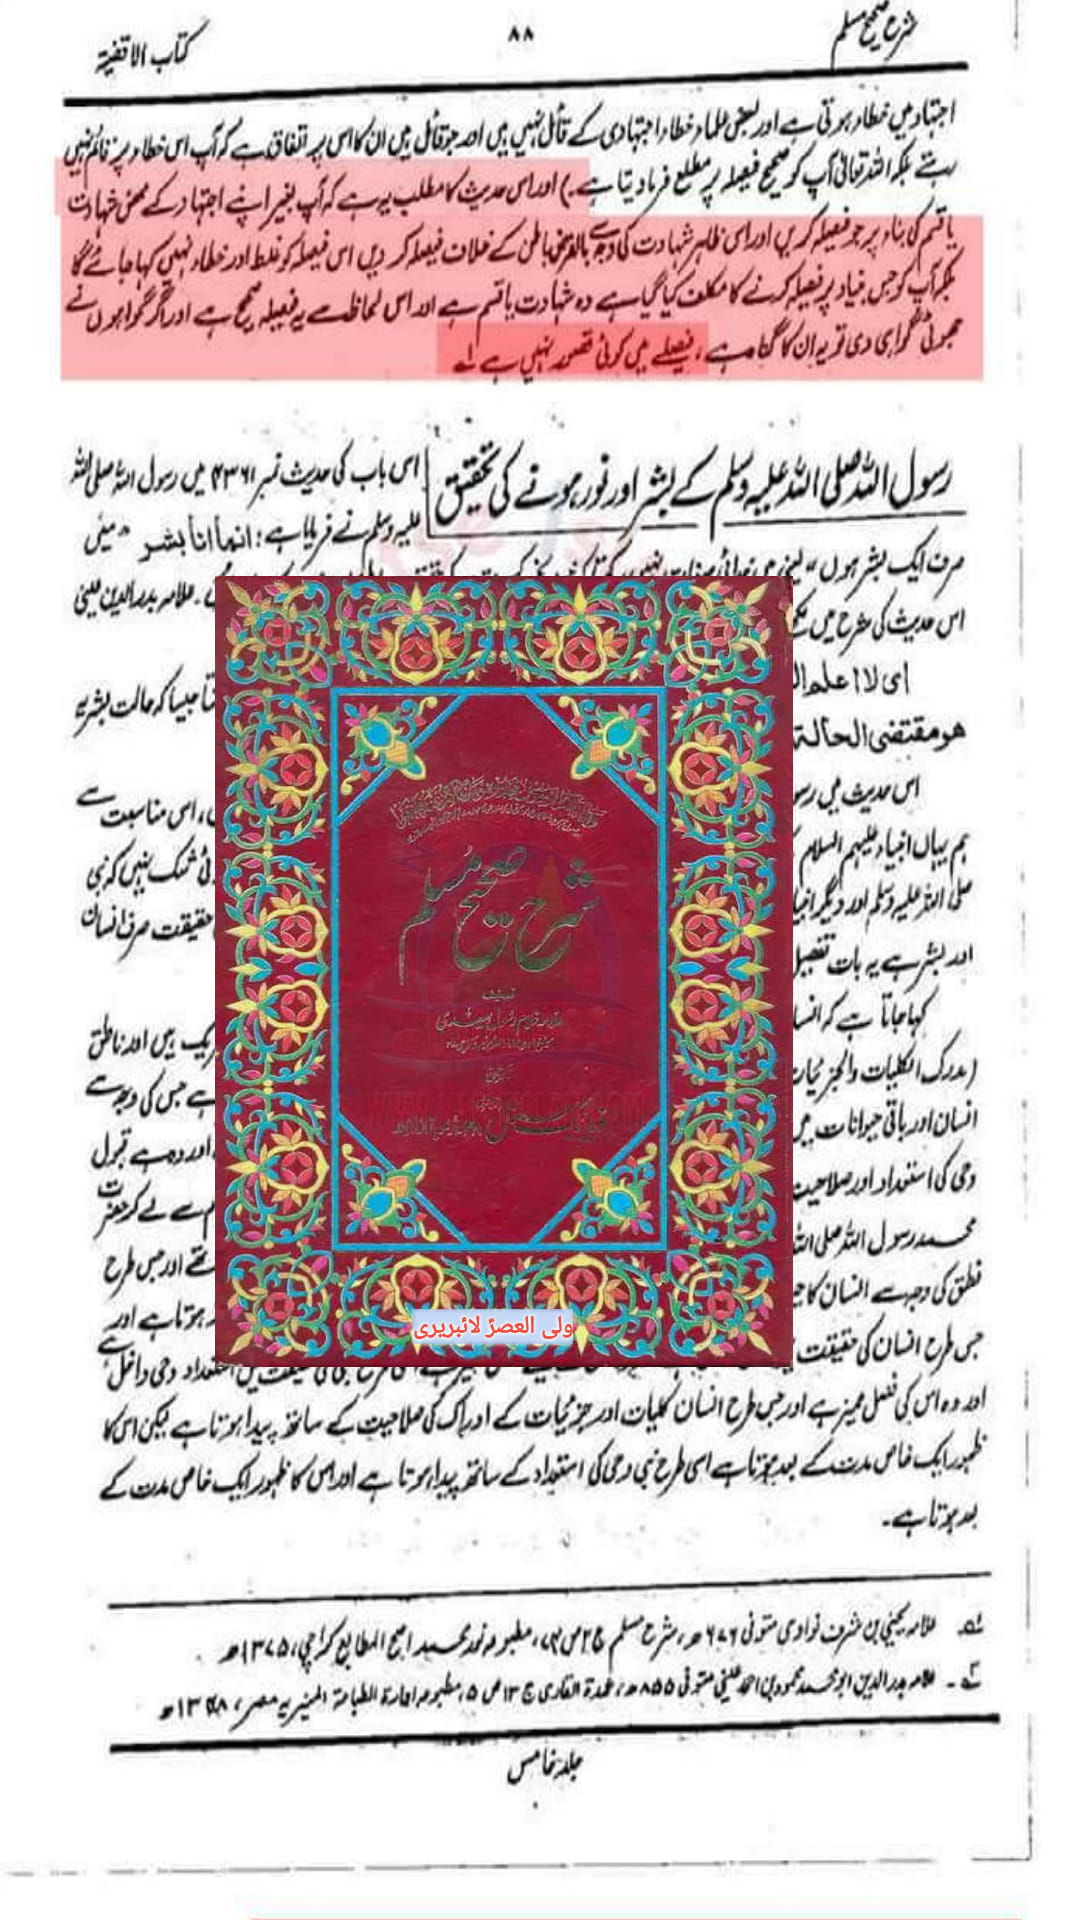 شرح صحیح مسلم
۸۸
کتاب الاقضیۃ
اجتہاد میں خطاء ہوتی ہے اور بعض علماء خطاء اجتہادی کے قائل نہیں ہیں اور جو قائل ہیں ان کا اس پر اتفاق ہے کہ آپ اس خطاء پر قائم نہیں
رہتے بلکہ اللہ تعالیٰ آپ کو صحیح فیصلہ پر مطلع فرما دیتا ہے۔) اور اس حدیث کا مطلب یہ ہے کہ آپ بغیر اپنے اجتہاد کے محض شہادت
یا قسم کی بناء پر جو فیصلہ کریں اور اس ظاہر شہادت کی وجہ سے بالفرض باطن کے خلاف فیصلہ کر دیں اس فیصلہ کو غلط اور خطاء نہیں کہا جائے گا
بلکہ آپ کو جس بنیاد پر فیصلہ کرنے کا مکلف کیا گیا ہے وہ شہادت یا قسم ہے اور اس لحاظ سے یہ فیصلہ صحیح ہے اور اگر گواہوں نے
جھوٹی گواہی دی تو یہ ان کا گناہ ہے، فیصلے میں کوئی قصور نہیں ہے ۱؎
رسول اللہ صلی اللہ علیہ وسلم کے بشر اور نور ہونے کی تحقیق
اس باب کی حدیث نمبر ۴۳۶۱ میں رسول اللہ صلی اللہ
علیہ وسلم نے فرمایا ہے: انما انا بشر "میں
صرف ایک بشر ہوں" یعنی میں
اس حدیث کی شرح میں لکھتے ۔ علامہ بدر الدین عینی
ای لا اعلم
تا جیسا کہ حالت بشریہ
ھو مقتضی الحالۃ
اس حدیث میں رسو
، اس مناسبت سے
ہم یہاں انبیاء علیہم السلام
ئی شک نہیں کہ نبی
صلی اللہ علیہ وسلم اور دیگر انبیا
حقیقت صرف انسان
اور بشر ہے یہ بات تفصیل
کہا جاتا ہے کہ انسا
یک ہیں اور ناطق
(مدرک الکلیات والجزئیات
ہے جس کی وجہ سے
انسان اور باقی حیوانات میں
اور وہ ہے قبول
وحی کی استعداد اور صلاحیت
م سے لے کر حضرت
محمد رسول اللہ صلی اللہ
تھے اور جس طرح
نطق کی وجہ سے انسان کا
ہوتا ہے اور
جس طرح انسان کی حقیقت
استعداد وحی داخل ہے
اور وہ اس کی فصل ممیز ہے اور جس طرح انسان کلیات اور جزئیات کے ادراک کی صلاحیت کے ساتھ پیدا ہوتا ہے لیکن اس کا
ظہور ایک خاص مدت کے بعد ہوتا ہے اسی طرح نبی وحی کی استعداد کے ساتھ پیدا ہوتا ہے اور اس کا ظہور ایک خاص مدت کے
بعد ہوتا ہے۔
شرح صحیح مسلم
تصنیف
علامہ غلام رسول سعیدی
ولی العصرؑ لائبریری
۱؎ علامہ یحییٰ بن شرف نواوی متوفی ۶۷۶ھ، شرح مسلم ج ۲ ص ۷۴، مطبوعہ نور محمد اصح المطابع کراچی، ۱۳۷۵ھ
۲؎ ۔ علامہ بدر الدین ابو محمد محمود بن احمد عینی متوفی ۸۵۵ھ، عمدۃ القاری ج ۱۳ ص ۵، مطبوعہ ادارۃ الطباعۃ المنیریہ مصر، ۱۳۴۸ھ
جلد خامس